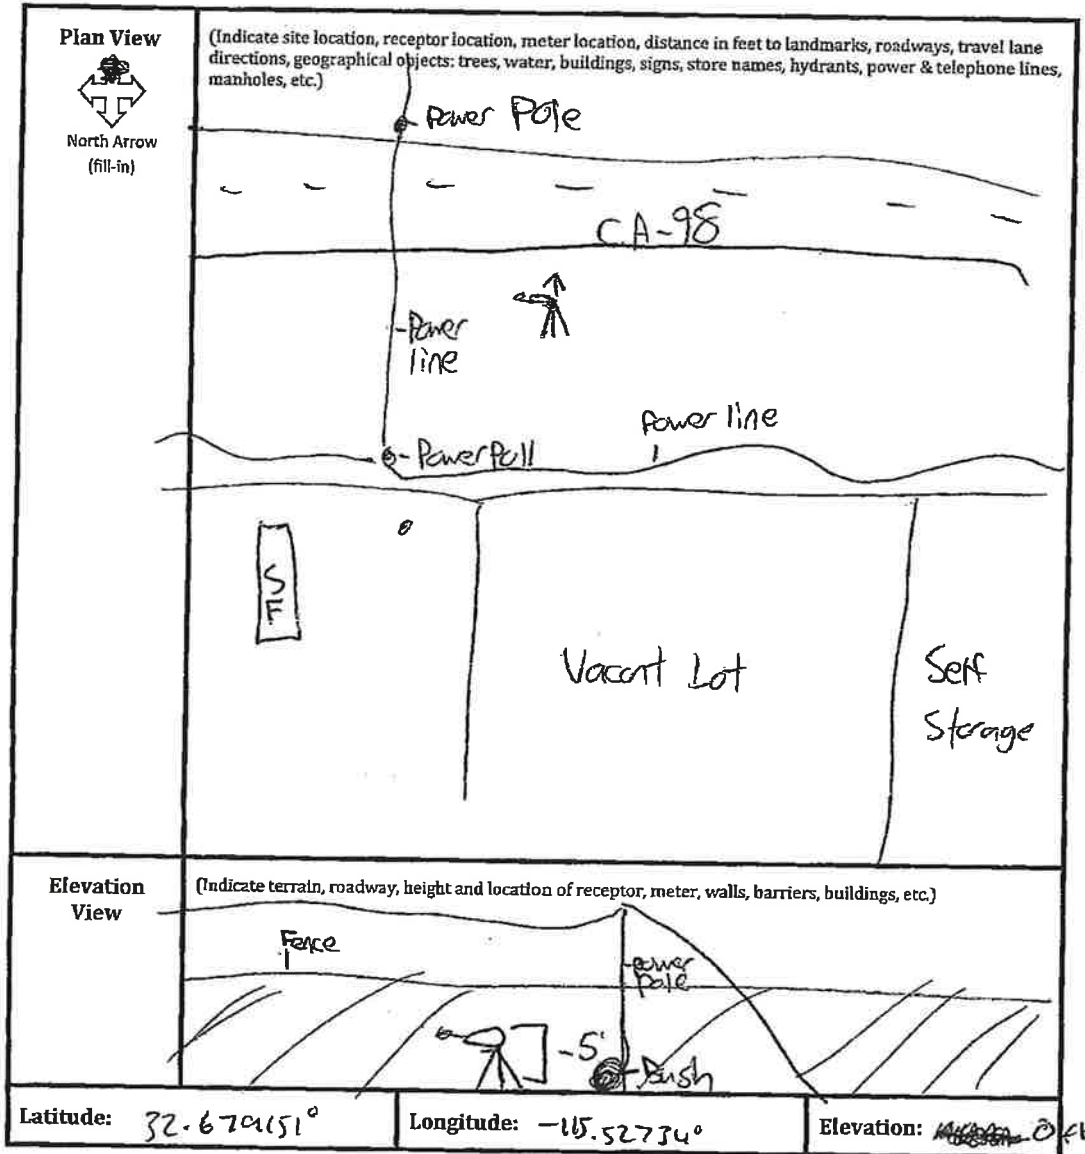 Plan View
North Arrow
(fill-in)
(Indicate site location, receptor location, meter location, distance in feet to landmarks, roadways, travel lane
directions, geographical objects: trees, water, buildings, signs, store names, hydrants, power & telephone lines,
manholes, etc.)
Power Pole
CA-98
Power
line
Power line
Power Poll
S
F
Vacant Lot
Self
Storage
Elevation
View
(Indicate terrain, roadway, height and location of receptor, meter, walls, barriers, buildings, etc.)
Fence
power
pole
5'
Bush
Latitude: 32.679151°
Longitude: -115.52734°
Elevation: 0 ft